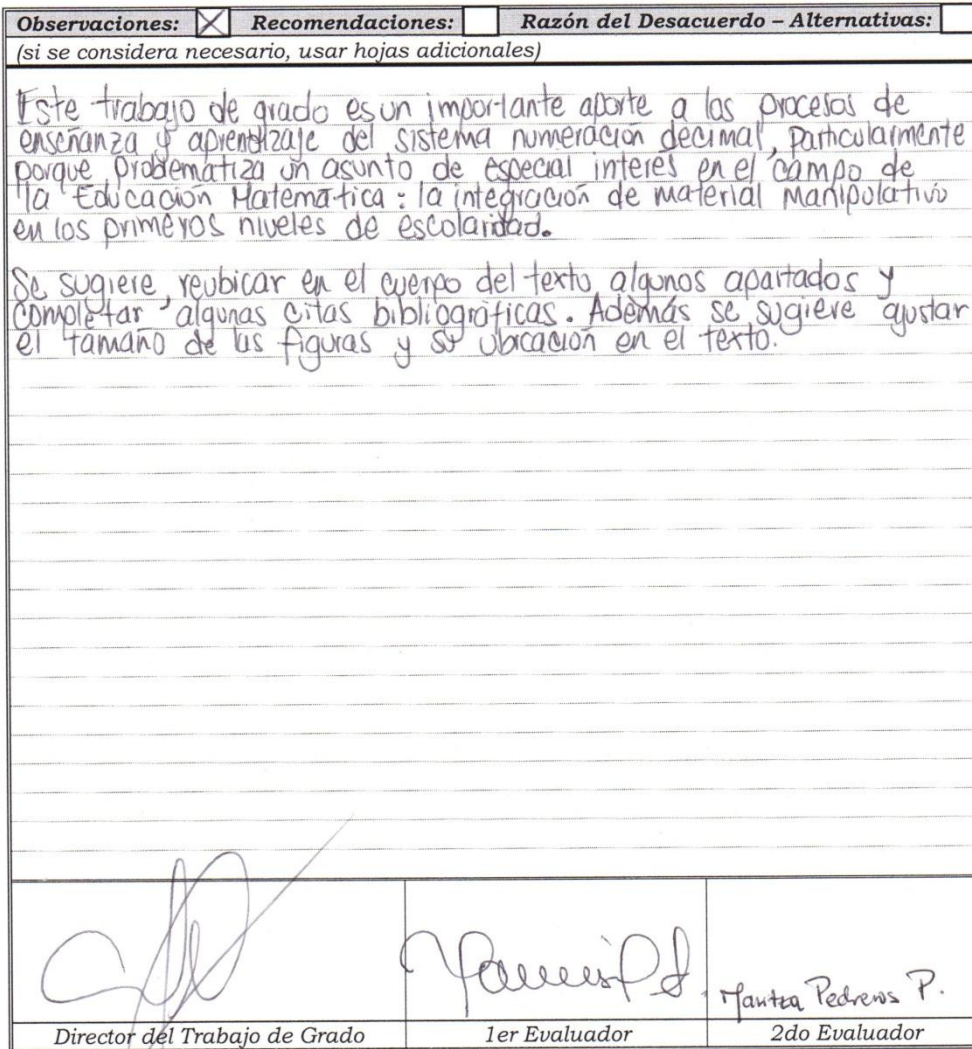 Observaciones: Recomendaciones: Razón del Desacuerdo – Alternativas:
(si se considera necesario, usar hojas adicionales)
Este trabajo de grado es un importante aporte a los procesos de
enseñanza y aprendizaje del sistema numeración decimal, particularmente
porque problematiza un asunto de especial interes en el campo de
la Educación Matemática : la integración de material manipulativo
en los primeros niveles de escolaridad.
Se sugiere, reubicar en el cuerpo del texto algunos apartados y
completar algunas citas bibliográficas. Además se sugiere ajustar
el tamaño de las figuras y su ubicación en el texto.
Maritza Pedreros P.
Director del Trabajo de Grado 1er Evaluador 2do Evaluador